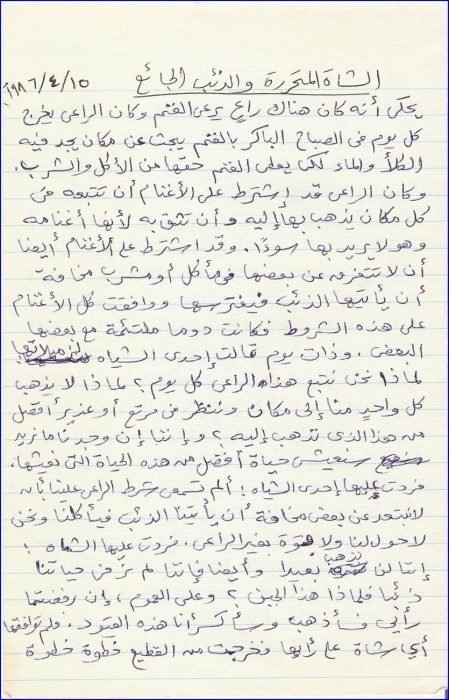 ١٩٨٦/٤/١٥م
الشاة المتحررة والذئب الجائع
يحكى أنه كان هناك راعٍ يرعى الغنم وكان الراعى يخرج
كل يوم فى الصباح الباكر بالغنم يبحث عن مكان يجد فيه
الكلأ والماء لكى يعطى الغنم حقها من الأكل والشرب.
وكان الراعى قد إشترط على الأغنام أن تتبعه فى
كل مكان يذهب بها إليه وأن تثق به لأنها أغنامه
وهو لا يريد بها سوءًا. وقد اشترط على الأغنام أيضا
أن لا تتفرق عن بعضها فى مأكل أو مشرب مخافة
أن يأتيها الذئب فيفترسها ووافقت كل الأغنام
على هذه الشروط فكانت دوما ملتئمة مع بعضها
البعض. وذات يوم قالت إحدى الشياه لزميلاتها
لماذا نحن نتبع هذا الراعى كل يوم؟ لماذا لا يذهب
كل واحدٍ منا إلى مكان وننظر فى مرتع أو غدير أفضل
من هذا الذى نذهب إليه؟ وإننا إن وجدنا ما نريد
سنعيش حياة أفضل من هذه الحياة التى نعيشها.
فردت عليها إحدى الشياه: ألم تسمعى شرط الراعى علينا بأن
لا نبتعد عن بعض مخافة أن يأتينا الذئب فيأكلنا ونحن
لا حول لنا ولا قوة بغير الراعى. فردت عليها الشاه:
إننا لن نذهب بعيدا وأيضا فإننا لم نر فى حياتنا
ذئبا فلماذا هذا الجبن؟ وعلى العموم، إن رفضتما
رأيى فسأذهب وسأكسر أنا هذه القيود. فلم توافقها
أي شاة على رأيها فخرجت من القطيع خطوة خطوة